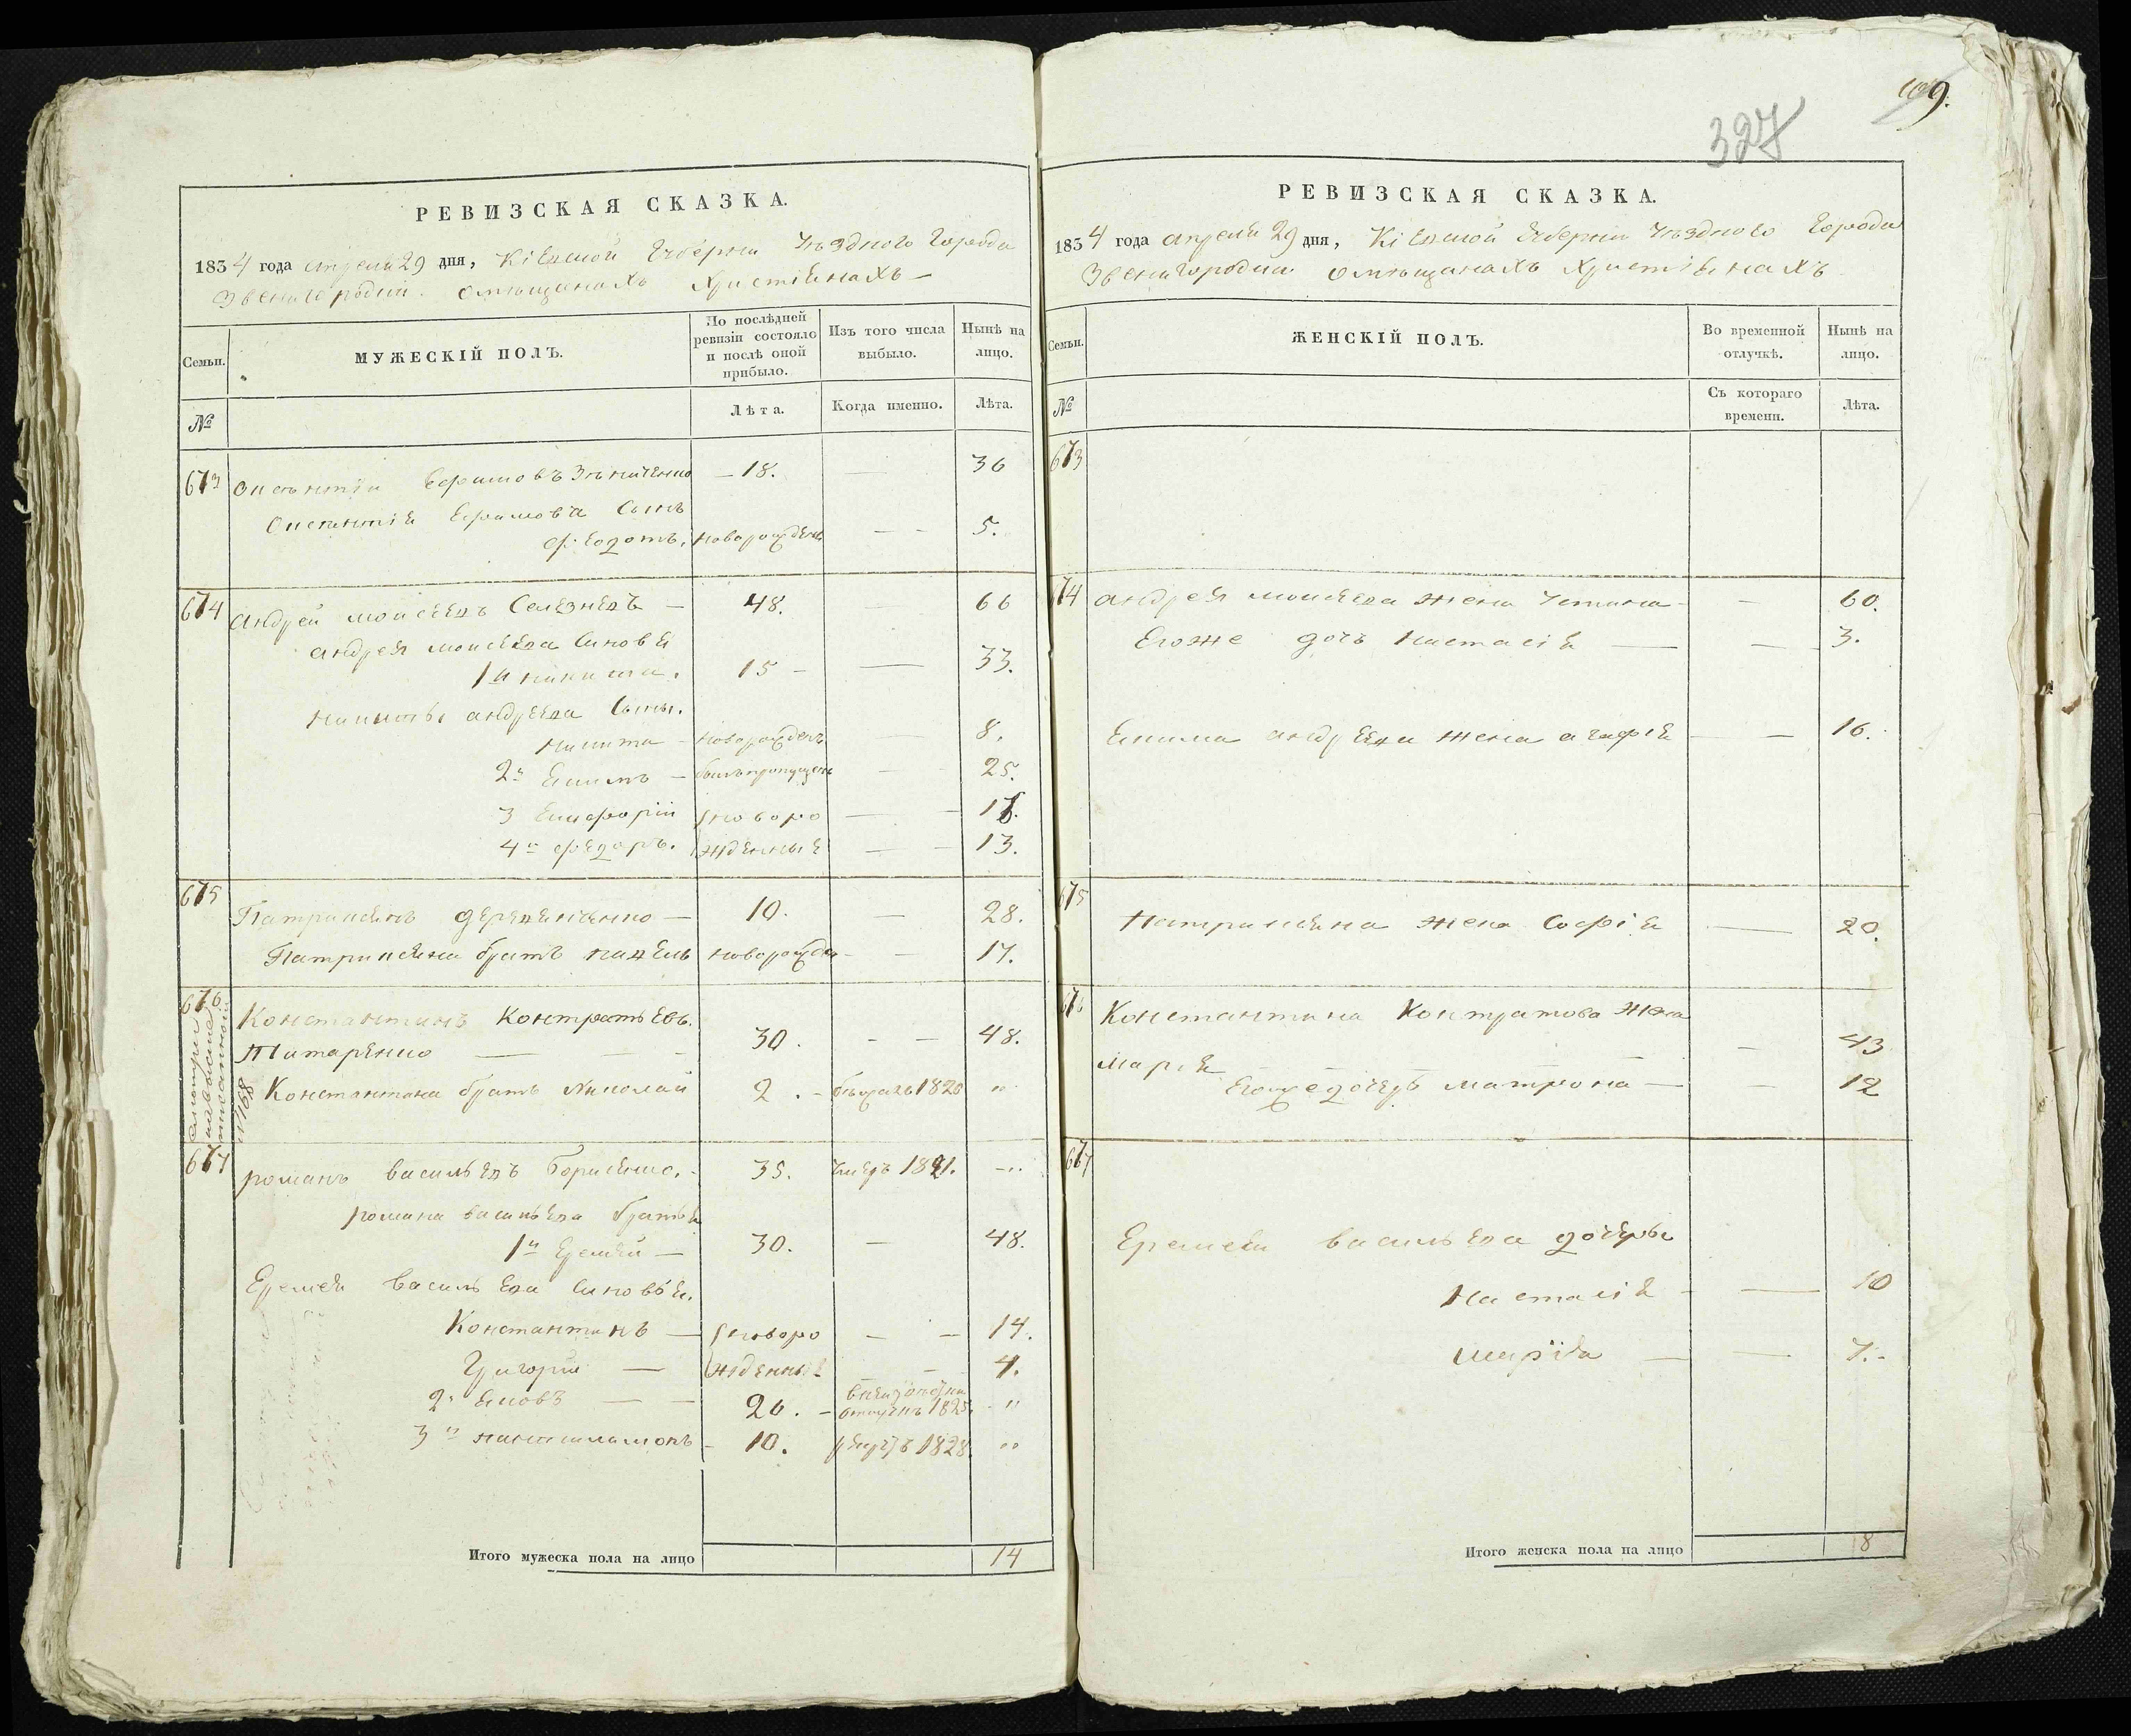 109.
327
РЕВИЗСКАЯ СКАЗКА.
1834 года апреля 29 дня, Кіевской Губерніи Уѣздного Города
Звенигородки о мѣщанахъ Христіянахъ
Семьи.
МУЖЕСКІЙ ПОЛЪ.
По послѣдней ревизіи состояло и послѣ оной прибыло.
Изъ того числа выбыло.
Нынѣ на лицо.
№
Лѣта.
Когда именно.
Лѣта.
673 Ефимовъ — 18. — 36
Ефимова Сынъ
Федотъ. новорожденъ — - 5.
674 Андрей Моисеевъ Селезневъ — 48. — 66
Андрея Моисеева Сыновья
1й Никита. 15 — 33.
Никиты Андреева Сынъ.
Никита — новорожденъ — 8.
2й Екимъ — былъ пропущенъ — 25.
3 новоро —
4й Федоръ. жденные — 13.
675 Патрикей — 10. — 28.
Патрикея братъ Павелъ новорожден — 17.
676 Константинъ Контратьевъ.
Титаренко — 30. — - 48.
Константина братъ Николай 2. — бѣжалъ 1820 "
смотри
№168
677 Романъ Васильевъ Борисенко. 35. умеръ 1821. — "
Романа Васильева братья
1й Еремей — 30. — 48.
Еремея Васильева Сыновья.
Константинъ — новоро — - 14.
Григорій — жденные — 4.
2й Яковъ — - 20. — 1825. "
3й Пантилимонъ — 10. 1828. "
Итого мужеска пола на лицо 14
РЕВИЗСКАЯ СКАЗКА.
1834 года апреля 29 дня, Кіевской Губерніи Уѣздного Города
Звенигородки о мѣщанахъ Христіянахъ
Семьи.
ЖЕНСКІЙ ПОЛЪ.
Во временной отлучкѣ.
Нынѣ на лицо.
№
Съ котораго времени.
Лѣта.
673
674 Андрея Моисеева жена Устина — 60.
Егоже дочь Настасія — — 3.
Екима Андреева жена Агафія — — 16.
675
Патрикея жена Софія — 20.
676 Константина Контратова жена
Марія — 43
Егоже дочерь Матрона — — 12
677
Еремея Васильева дочеры
Настасія — — 10
Марія — — 7.
Итого женска пола на лицо 8